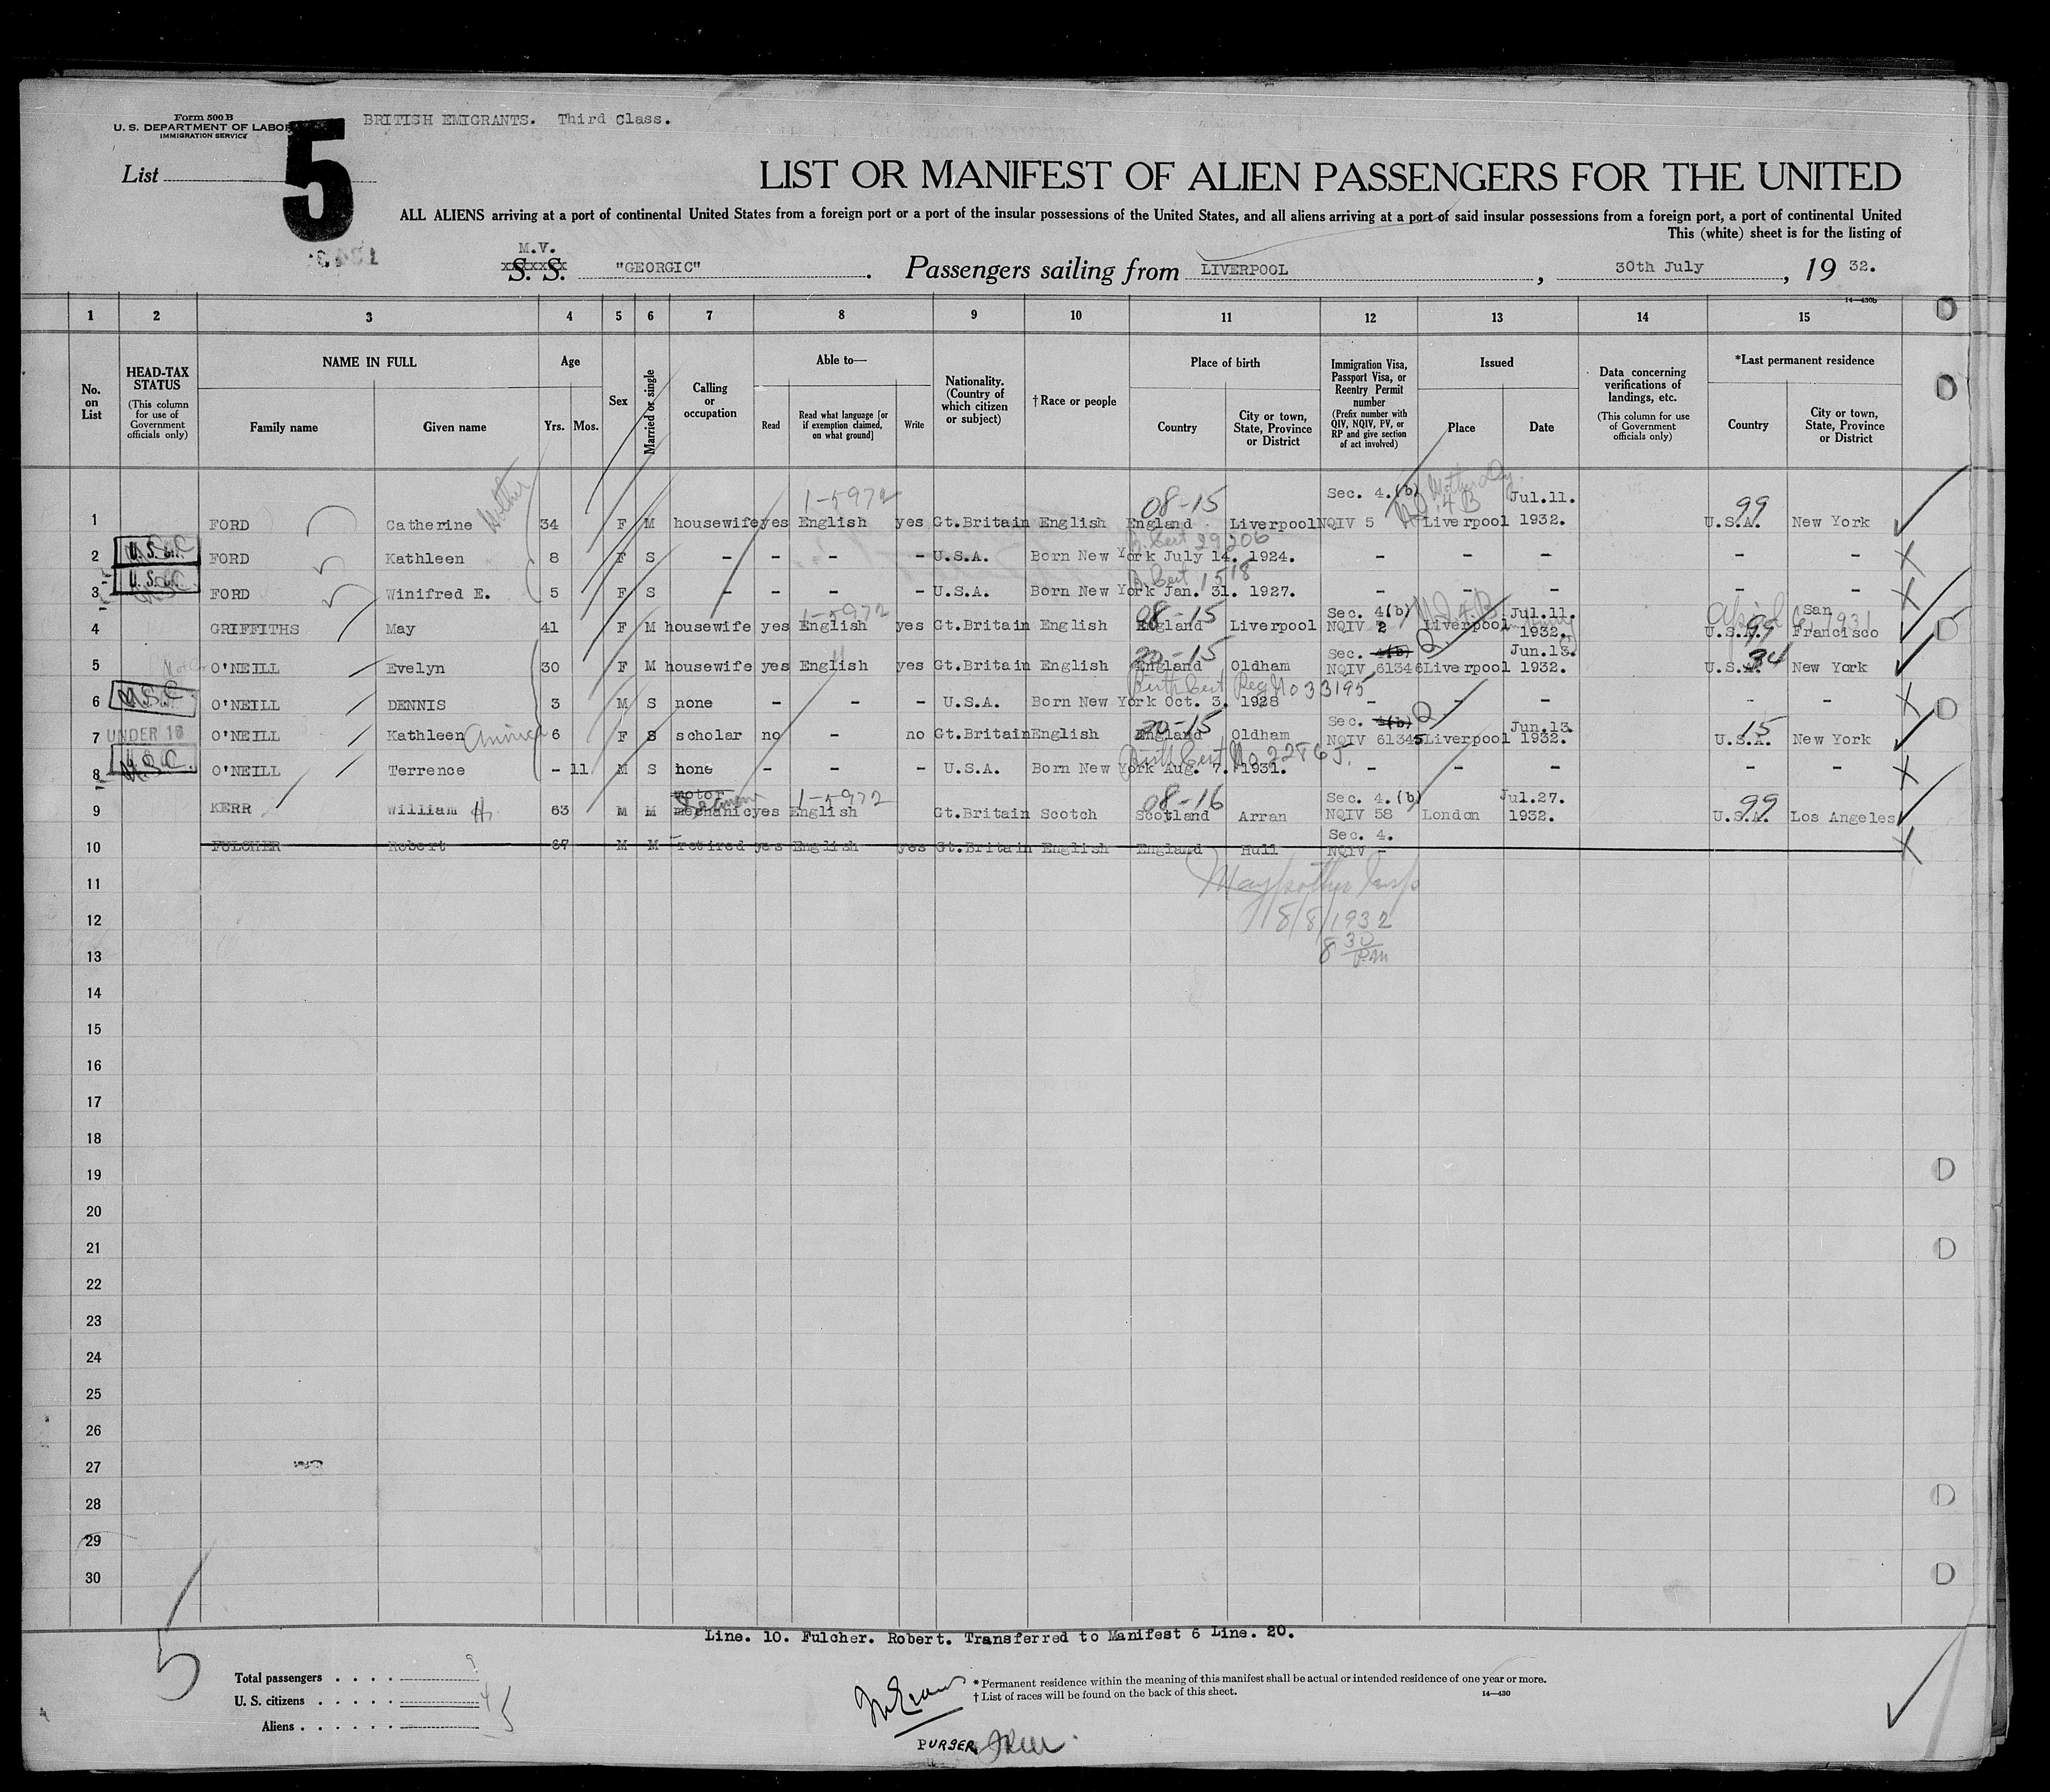 Form 500 B
U. S. DEPARTMENT OF LABOR
IMMIGRATION SERVICE
BRITISH EMIGRANTS. Third Class.
List 5
LIST OR MANIFEST OF ALIEN PASSENGERS FOR THE UNITED
ALL ALIENS arriving at a port of continental United States from a foreign port or a port of the insular possessions of the United States, and all aliens arriving at a port of said insular possessions from a foreign port, a port of continental United
This (white) sheet is for the listing of
M.V.
S. S. "GEORGIC". Passengers sailing from LIVERPOOL, 30th July, 19 32.
14—430b
1 2 3 4 5 6 7 8 9 10 11 12 13 14 15
No. on List
HEAD-TAX STATUS
(This column for use of Government officials only)
NAME IN FULL
Family name Given name
Age
Yrs. Mos.
Sex
Married or single
Calling or occupation
Able to—
Read Read what language [or if exemption claimed, on what ground] Write
Nationality. (Country of which citizen or subject)
†Race or people
Place of birth
Country City or town, State, Province or District
Immigration Visa, Passport Visa, or Reentry Permit number
(Prefix number with QIV, NQIV, PV, or RP and give section of act involved)
Issued
Place Date
Data concerning verifications of landings, etc.
(This column for use of Government officials only)
*Last permanent residence
Country City or town, State, Province or District
Mother 1-5972 08-15 Sec. 4.(b) Jul.11. 99
1 FORD Catherine 34 F M housewife yes English yes Gt.Britain English England Liverpool NQIV 5 Liverpool 1932. U.S.A. New York
B. Cert 29206
2 U.S.C. FORD Kathleen 8 F S - - - - U.S.A. Born New York July 14. 1924. - - - - -
B. Cert 1518
3 U.S.C. FORD Winifred E. 5 F S - - - - U.S.A. Born New York Jan. 31. 1927. - - - - -
1-5972 08-15 Sec. 4(b) Jul.11. April 6, 1931 San
4 GRIFFITHS May 41 F M housewife yes English yes Gt.Britain English England Liverpool NQIV 2 Liverpool 1932. U.S.A. 99 Francisco
20-15 Sec. 4(b) Q Jun.13. 34
5 O'NEILL Evelyn 30 F M housewife yes English yes Gt.Britain English England Oldham NQIV 61346 Liverpool 1932. U.S.A. New York
Birth Cert Reg No 33195
6 U.S.C. O'NEILL DENNIS 3 M S none - - - U.S.A. Born New York Oct. 3. 1928 - - - - -
20-15 Sec. 4(b) Q Jun.13. 15
7 UNDER 16 O'NEILL Kathleen 6 F S scholar no - no Gt.Britain English England Oldham NQIV 61345 Liverpool 1932. U.S.A. New York
Birth Cert No 22865.
8 U.S.C. O'NEILL Terrence - 11 M S none - - - U.S.A. Born New York Aug. 7. 1931. - - - - -
motor 1-5972 08-16 Sec. 4.(b) Jul.27. 99
9 KERR William H. 63 M M mechanic yes English Gt.Britain Scotch Scotland Arran NQIV 58 London 1932. U.S.A. Los Angeles
Sec. 4.
10 FULCHER Robert 67 M M retired yes English yes Gt.Britain English England Hull NQIV -
11
12 8/8/1932
13 8 30 P.M
14
15
16
17
18
19
20
21
22
23
24
25
26
27
28
29
30
Line. 10. Fulcher. Robert. Transferred to Manifest 6 Line. 20.
5
Total passengers . . . . 9
U. S. citizens . . . . . 4
Aliens . . . . . . 5
* Permanent residence within the meaning of this manifest shall be actual or intended residence of one year or more.
† List of races will be found on the back of this sheet.
14—430
PURSER